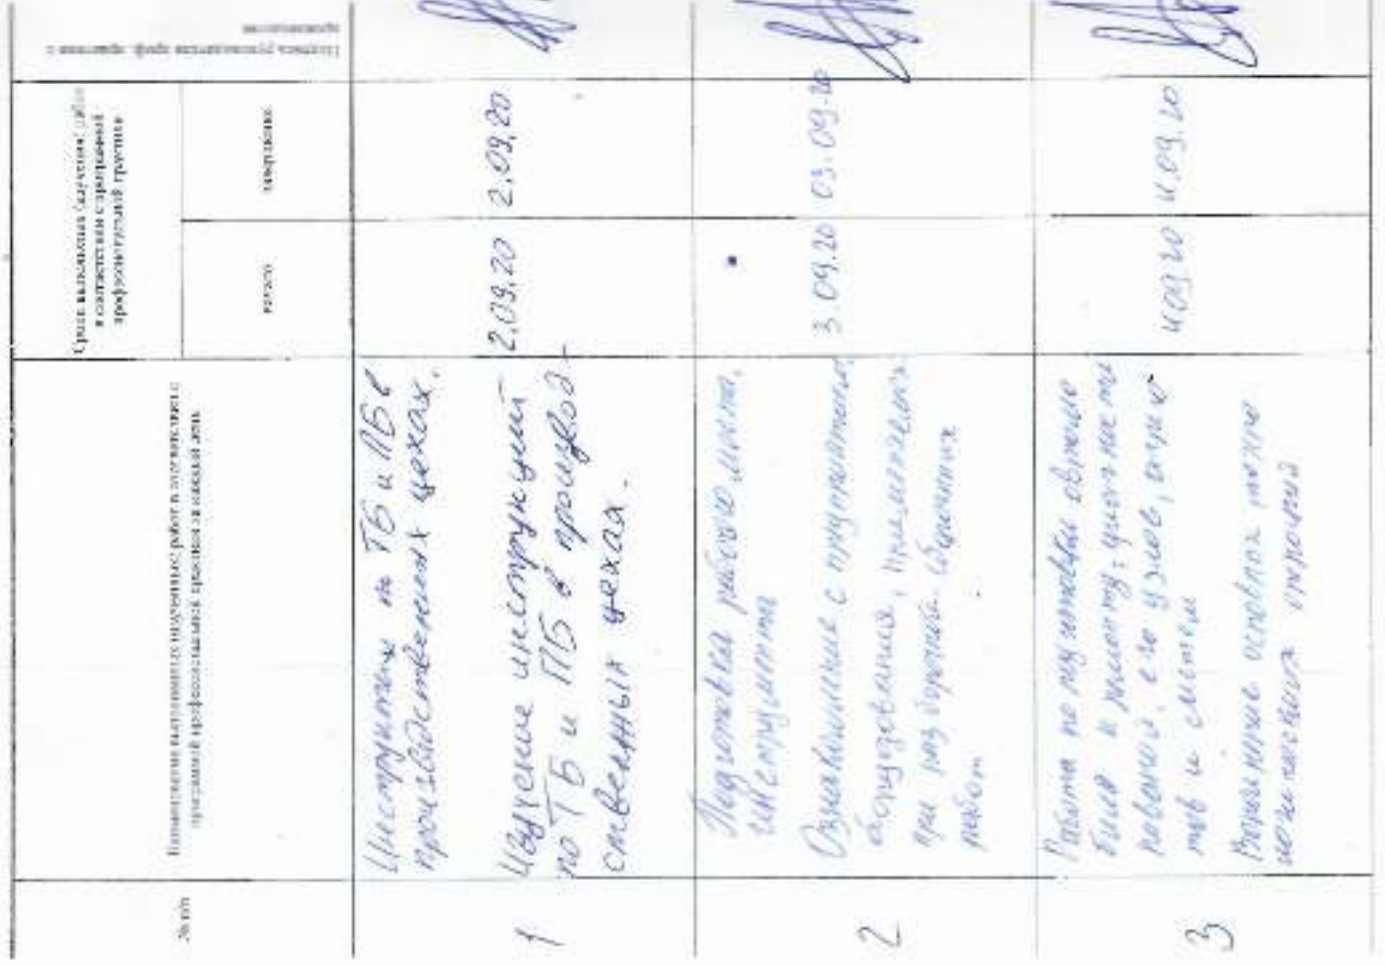 № п/п
Наименование выполняемых (изученных) работ в соответствии с
программой профессиональной практики на каждый день
Сроки выполнения (изучения) работ
в соответствии с программой
профессиональной практики
начало
завершение
Подпись руководителя проф. практики с
производства
1
Инструктаж по ТБ и ПБ в
производственных цехах.
Изучение инструкций
по ТБ и ПБ в производ-
ственных цехах.
2.09.20
2.09.20
2
Подготовка рабочего места,
инструмента
Ознакомление с
оборудования,
при разборочно-сборочных
работ.
3.09.20
03.09.20
3
Работа по подготовке
к ремонту:
его узлов,
и систем
основных
09.20
09.20